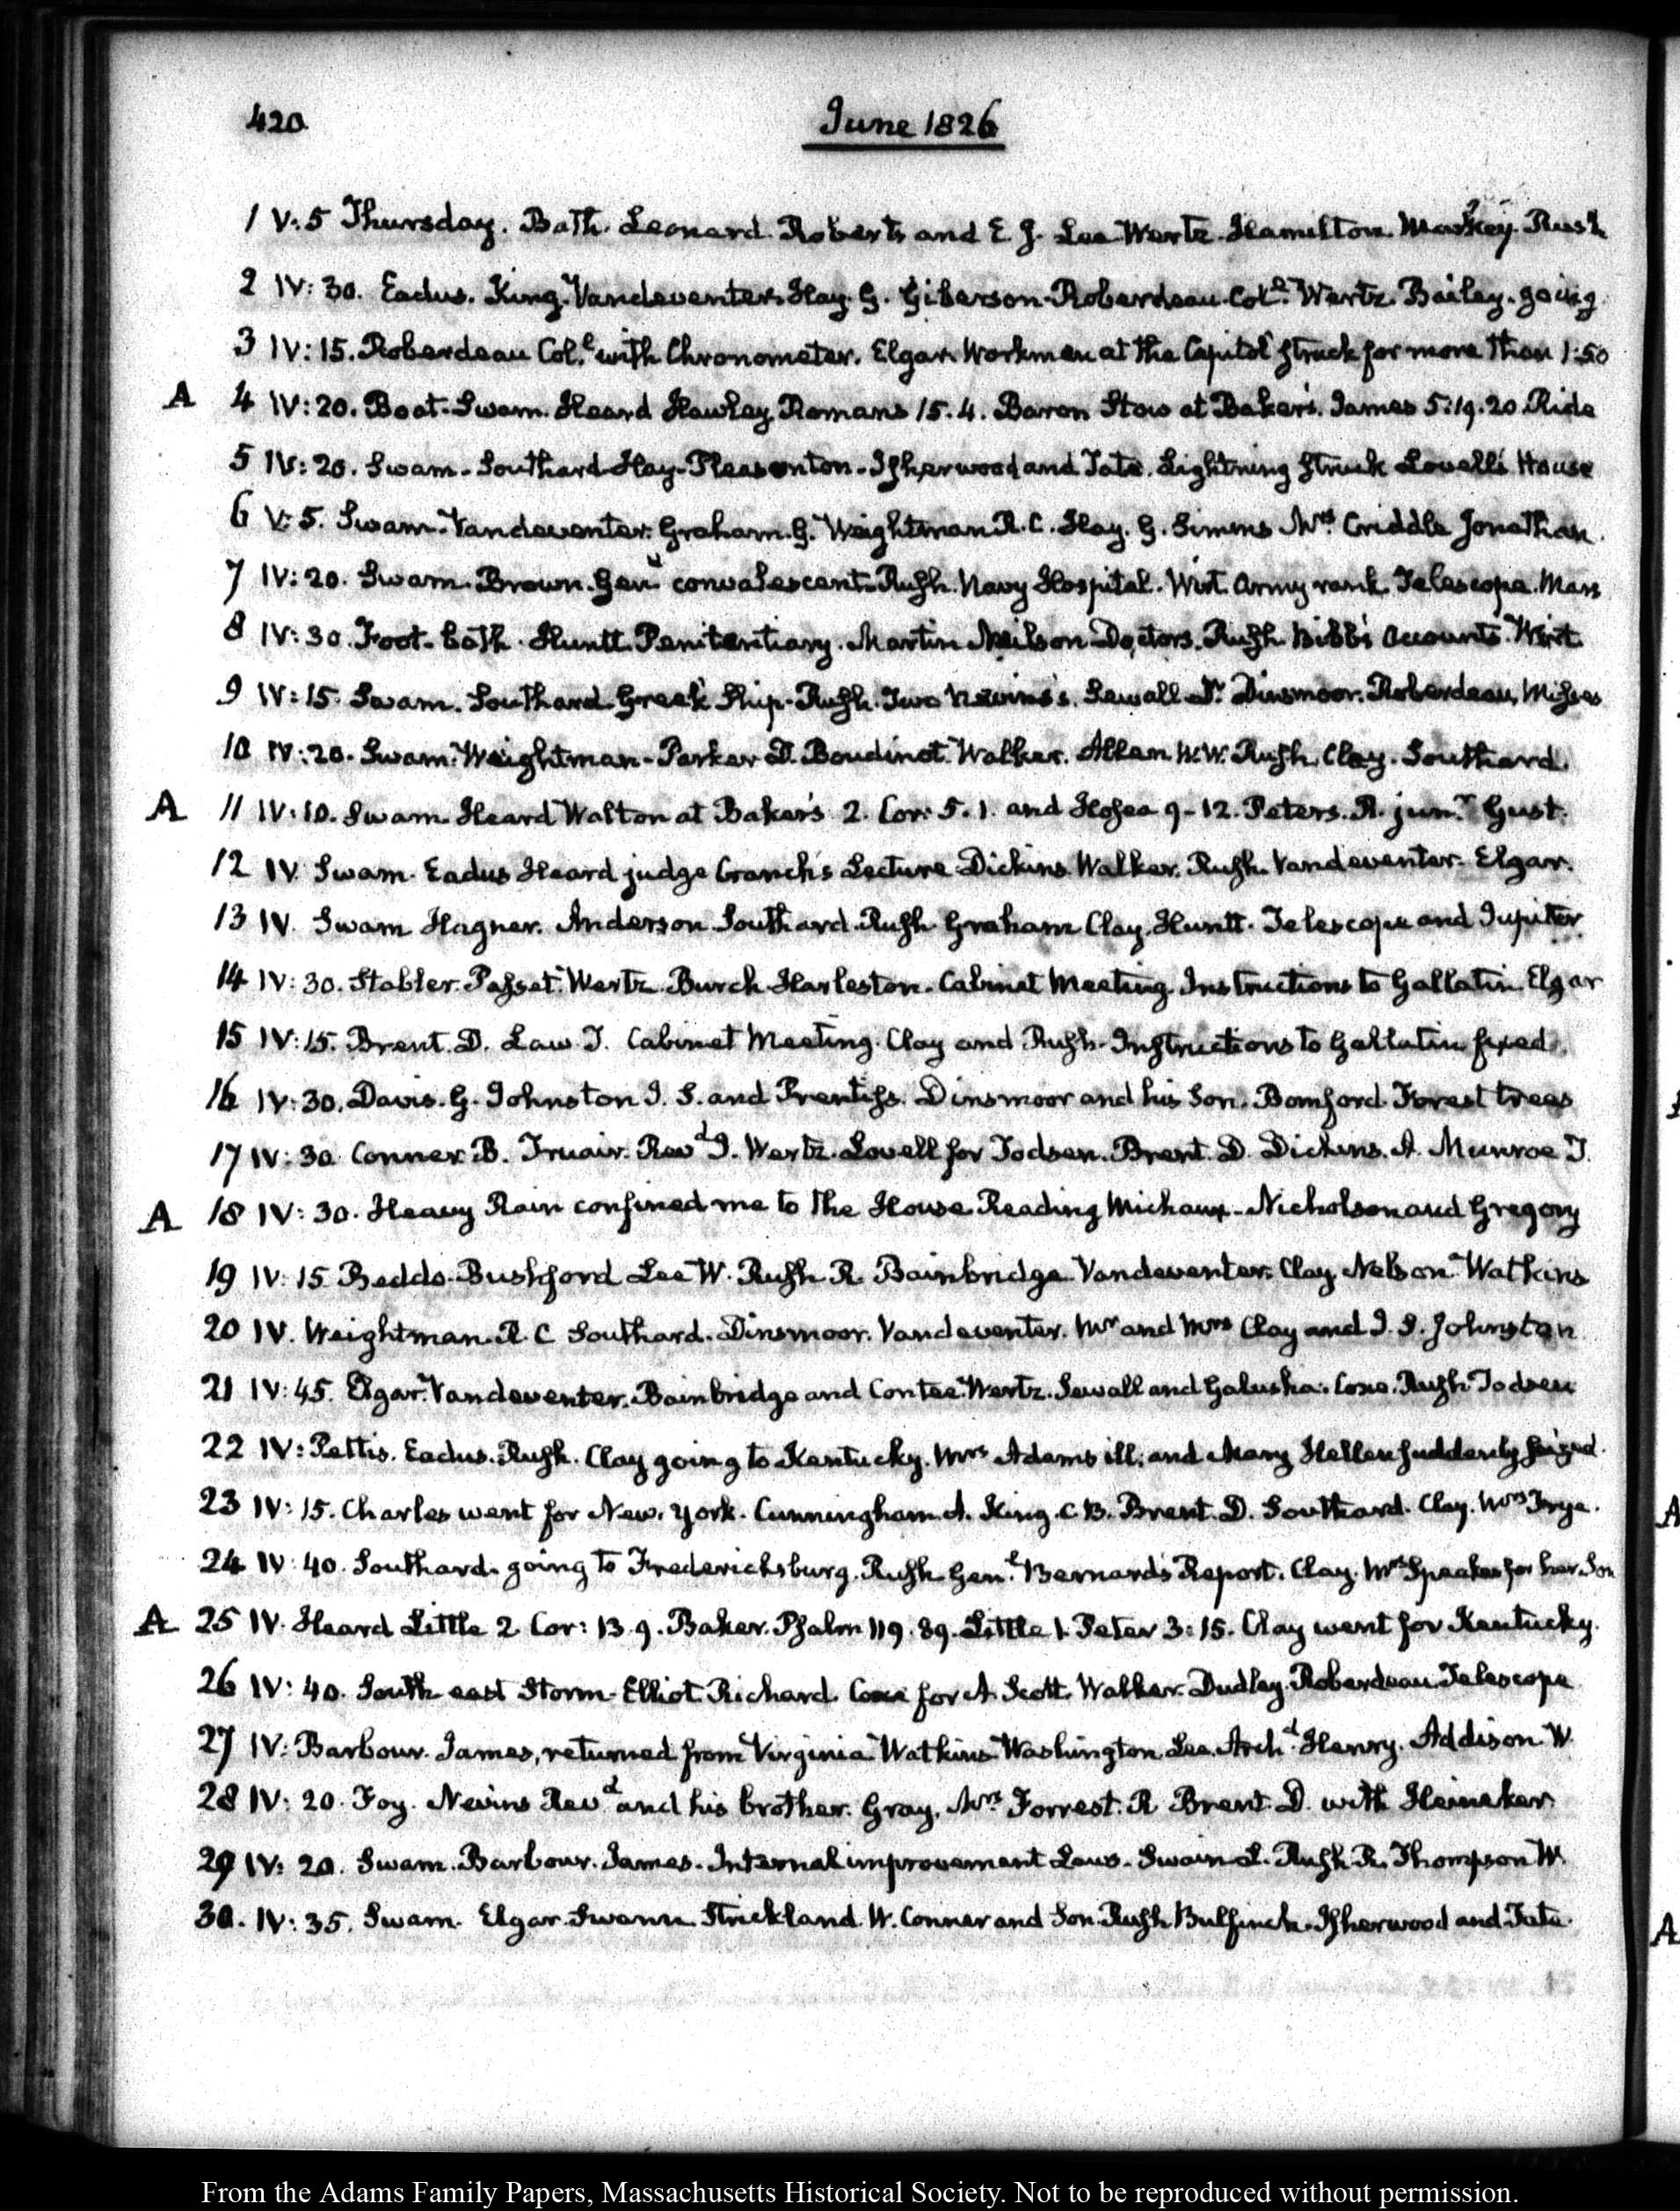 420
June 1826
1 V:5 Thursday. Bath. Leonard. Roberts and E. J. Lee. Wertz. Hamilton. Markey. Rush
2 IV:30. Eadus. King. Vandeventer. Hay. G. Giberson. Roberdeau. Col.l Wertz. Bailey. going
3 IV:15. Roberdeau Col.l with Chronometer. Elgar. Workmen at the Capitol struck for more than 1:50
A 4 IV:20. Boat. Swam. Heard Hawley Romans 15.4. Baron Stow at Baker's. James 5:19.20. Ride
5 IV:20. Swam. Southard. Hay. Pleasonton. Isherwood and Tate. Lightning struck Lovell's House
6 V:5. Swam. Vandeventer. Graham. G. Weightman R. C. Hay. G. Simms Mrs. Criddle Jonathan.
7 IV:20. Swam. Brown. Gen.l convalescent. Rush. Navy Hospital. Wirt. Army rank. Telescope. Mars
8 IV:30. Foot. bath. Huntt. Penitentiary. Martin Neilson Doctors. Rush Bibb's accounts. Wirt
9 IV:15. Swam. Southard. Greek Ship. Rush. Two Nevins's. Sewall Dr. Dinsmoor. Roberdeau, Misses
10 IV:20. Swam. Weightman. Parker D. Boudinot. Walker. Allen W. W. Rush. Clay. Southard.
A 11 IV:10. Swam. Heard Walton at Baker's 2. Cor: 5.1. and Hosea 9-12. Peters. R. jun.r Gust.
12 IV. Swam. Eadus Heard judge Cranch's Lecture Dickins. Walker. Rush. Vandeventer. Elgar.
13 IV. Swam Hagner. Anderson. Southard. Rush. Graham Clay. Huntt. Telescope and Jupiter.
14 IV:30. Stabler. Passet. Wertz. Burch. Harleston. Cabinet Meeting. Instructions to Gallatin. Elgar
15 IV:15. Brent. D. Law. T. Cabinet Meeting. Clay and Rush. Instructions to Gallatin fixed.
16 IV:30. Davis. G. Johnston J. S. and Prentiss. Dinsmoor and his Son. Bomford. Forest trees
17 IV:30. Conner. B. Truair. Revd J. Wertz. Lovell for Todsen. Brent. D. Dickins. A. Munroe T.
A 18 IV:30. Heavy Rain confined me to the House. Reading Michaux. Nicholson and Gregory
19 IV:15 Beddo. Bushford Lee W. Rush R. Bainbridge. Vandeventer. Clay. Nelson. Watkins
20 IV. Weightman. R. C Southard. Dinsmoor. Vandeventer. Mr and Mrs Clay and J. S. Johnston
21 IV:45. Elgar. Vandeventer. Bainbridge and Contee. Wertz. Sewall and Galusha. Coxe. Rush. Todsen
22 IV: Pettis. Eadus. Rush. Clay going to Kentucky. Mrs Adams ill; and Mary Hellen suddenly seized.
23 IV:15. Charles went for New. York. Cunningham. A. King. C B. Brent. D. Southard. Clay. Mrs Frye.
24 IV:40. Southard. going to Fredericksburg. Rush. Gen.l Bernard's Report. Clay. Mrs Speake for her Son
A 25 IV. Heard Little 2 Cor: 13.9. Baker. Psalm 119.89. Little 1 Peter 3:15. Clay went for Kentucky.
26 IV:40. South east Storm. Elliot Richard. Coxe for A Scott. Walker. Dudley. Roberdeau. Telescope
27 IV: Barbour. James, returned from Virginia. Watkins. Washington. Lee. Archd. Henry. Addison W.
28 IV:20. Foy. Nevins Revd and his brother. Gray. Mrs Forrest. R Brent. D. with Heineker.
29 IV:20. Swam. Barbour. James. Internal improvement Laws. Swain L. Rush R. Thompson W.
30. IV:35. Swam. Elgar. Swann. Strickland. W. Conner and Son. Rush. Bulfinch. Isherwood and Tate.
A
A
From the Adams Family Papers, Massachusetts Historical Society. Not to be reproduced without permission.